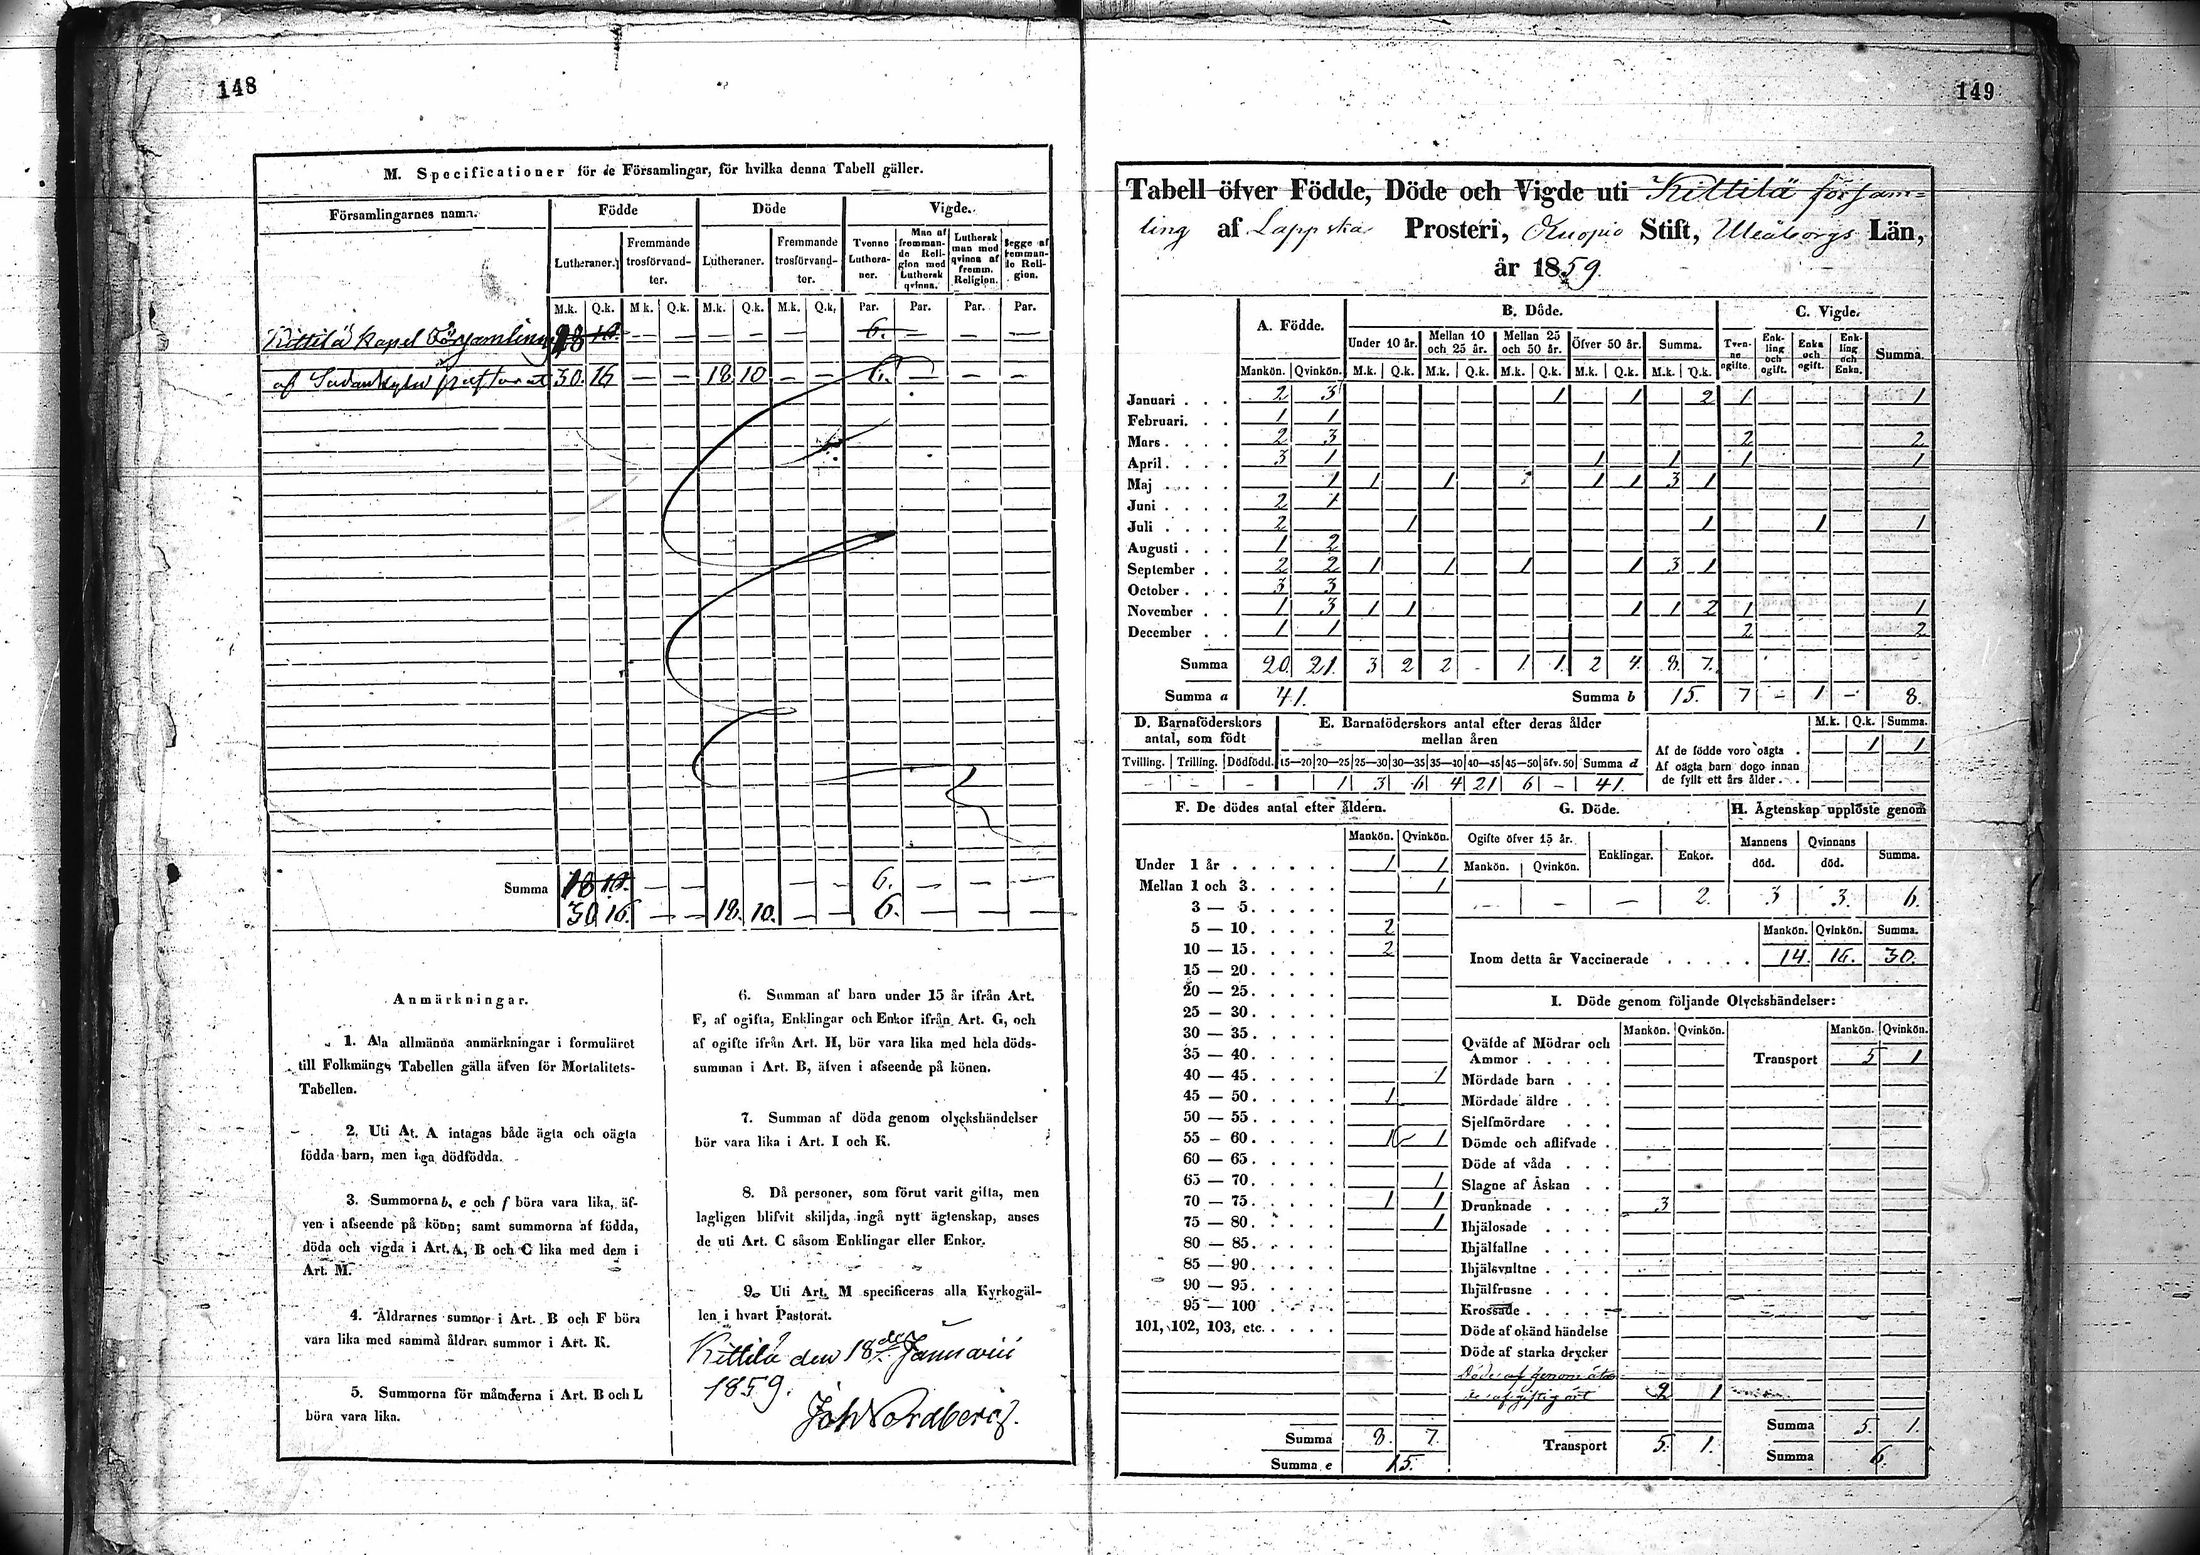 148
M. Specificationer för de Församlingar, för hvilka denna Tabell gäller.
Församlingarnes namn. Födde Döde Vigde.
Lutheraner. Fremmande trosförvandter. Lutheraner. Fremmande trosförvandter. Tvenne Lutheraner. Man af fremmande Religion med Luthersk qvinna. Luthersk man med qvinna af fremm. Religion. Begge af fremmande Religion.
M.k. Q.k. M.k. Q.k. M.k. Q.k. M.k. Q.k. Par. Par. Par. Par.
Kittilä kapel Församling — — — — — — 6. — — —
af Sodankylä pastorat 30. 16 — — 18 10 — — 6. — — —
Summa — — — — 6. — — —
30 16. — — 18. 10. — — 6. — — —
Anmärkningar.
1. Alla allmänna anmärkningar i formuläret
till Folkmängs Tabellen gälla äfven för Mortalitets-
Tabellen.
2. Uti At. A intagas både ägta och oägta
födda barn, men iga dödfödda.
3. Summorna b, e och f böra vara lika, äf-
ven i afseende på könn; samt summorna af födda,
döda och vigda i Art. A, B och C lika med dem i
Art. M.
4. Äldrarnes sumor i Art. B och F böra
vara lika med samma åldrar summor i Art. K.
5. Summorna för månderna i Art. B och L
böra vara lika.
6. Summan af barn under 15 år ifrån Art.
F, af ogifta, Enklingar och Enkor ifrån Art. G, och
af ogifte ifrån Art. H, bör vara lika med hela döds-
summan i Art. B, äfven i afseende på könen.
7. Summan af döda genom olyckshändelser
bör vara lika i Art. I och K.
8. Då personer, som förut varit gifta, men
lagligen blifvit skiljda, ingå nytt ägtenskap, anses
de uti Art. C såsom Enklingar eller Enkor.
9. Uti Art. M specificeras alla Kyrkogäl-
len i hvart Pastorat.
Kittilä den 18de Januarii
1859.
Joh Nordberg.
149
Tabell öfver Födde, Döde och Vigde uti Kittilä försam=
ling af Lappska Prosteri, Kuopio Stift, Uleåborgs Län,
år 1859.
A. Födde. B. Döde. C. Vigde.
Under 10 år. Mellan 10 och 25 år. Mellan 25 och 50 år. Öfver 50 år. Summa. Tvenne ogifte. Enkling och ogift. Enka och ogift. Enkling och Enka. Summa.
Mankön. Qvinkön. M.k. Q.k. M.k. Q.k. M.k. Q.k. M.k. Q.k. M.k. Q.k.
Januari . . . 2 3 1 1 2 1 1
Februari. . . 1 1
Mars . . . . 2 3 2 2
April . . . . 3 1 1 1 1 1
Maj . . . . 1 1 1 1 1 3 1
Juni . . . . 2 1
Juli . . . . 2 1 1 1 1
Augusti . . . 1 2
September . . 2 2 1 1 1 1 3 1
October . . . 3 3
November . . 1 3 1 1 1 1 2 1 1
December . . 1 1 2 2
Summa 20. 21. 3 2 2 - 1 1. 2 4. 8. 7.
Summa a 41. Summa b 15. 7 - 1 - 8.
D. Barnaföderskors antal, som födt
E. Barnaföderskors antal efter deras ålder mellan åren
M.k. Q.k. Summa.
Tvilling. Trilling. Dödfödd. 15—20 20—25 25—30 30—35 35—40 40—45 45—50 öfv. 50 Summa d
- - - 1 3 6 4 21 6 - 41.
Af de födde voro oägta . 1 1
Af oägta barn dogo innan
de fyllt ett års ålder . .
F. De dödes antal efter åldern.
Mankön. Qvinkön.
Under 1 år . . . . . . 1 1
Mellan 1 och 3 . . . . . 1
3 — 5. . . . .
5 — 10. . . . . 2
10 — 15. . . . . 2
15 — 20. . . . .
20 — 25. . . . .
25 — 30. . . . .
30 — 35. . . . .
35 — 40. . . . .
40 — 45. . . . . 1
45 — 50. . . . . 1
50 — 55. . . . .
55 — 60. . . . . 1 1
60 — 65. . . . .
65 — 70. . . . . 1
70 — 75. . . . . 1 1
75 — 80. . . . . 1
80 — 85. . . . .
85 — 90. . . . .
90 — 95. . . . .
95 — 100 . . . .
101, 102, 103, etc. . . . .
Summa 8. 7.
Summa e 15.
G. Döde.
Ogifte öfver 15 år. Enklingar. Enkor.
Mankön. Qvinkön.
- - — 2.
H. Ägtenskap upplöste genom
Mannens död. Qvinnans död. Summa.
3 3. 6.
Mankön. Qvinkön. Summa.
Inom detta år Vaccinerade . . . . . 14. 16. 30.
I. Döde genom följande Olyckshändelser:
Mankön. Qvinkön. Mankön. Qvinkön.
Qväfde af Mödrar och
Ammor . . . . . Transport 5 1
Mördade barn . . .
Mördade äldre . . .
Sjelfmördare . . .
Dömde och aflifvade .
Döde af våda . . .
Slagne af Åskan . .
Drunknade . . . . 3
Ihjälosade . . . .
Ihjälfallne . . . .
Ihjälsvultne . . . .
Ihjälfrusne . . . .
Krossade . . . . .
Döde af okänd händelse
Döde af starka drycker
Döde af genom ätan-
de af giftig ört 2 1
Summa 5. 1.
Transport 5. 1.
Summa 6